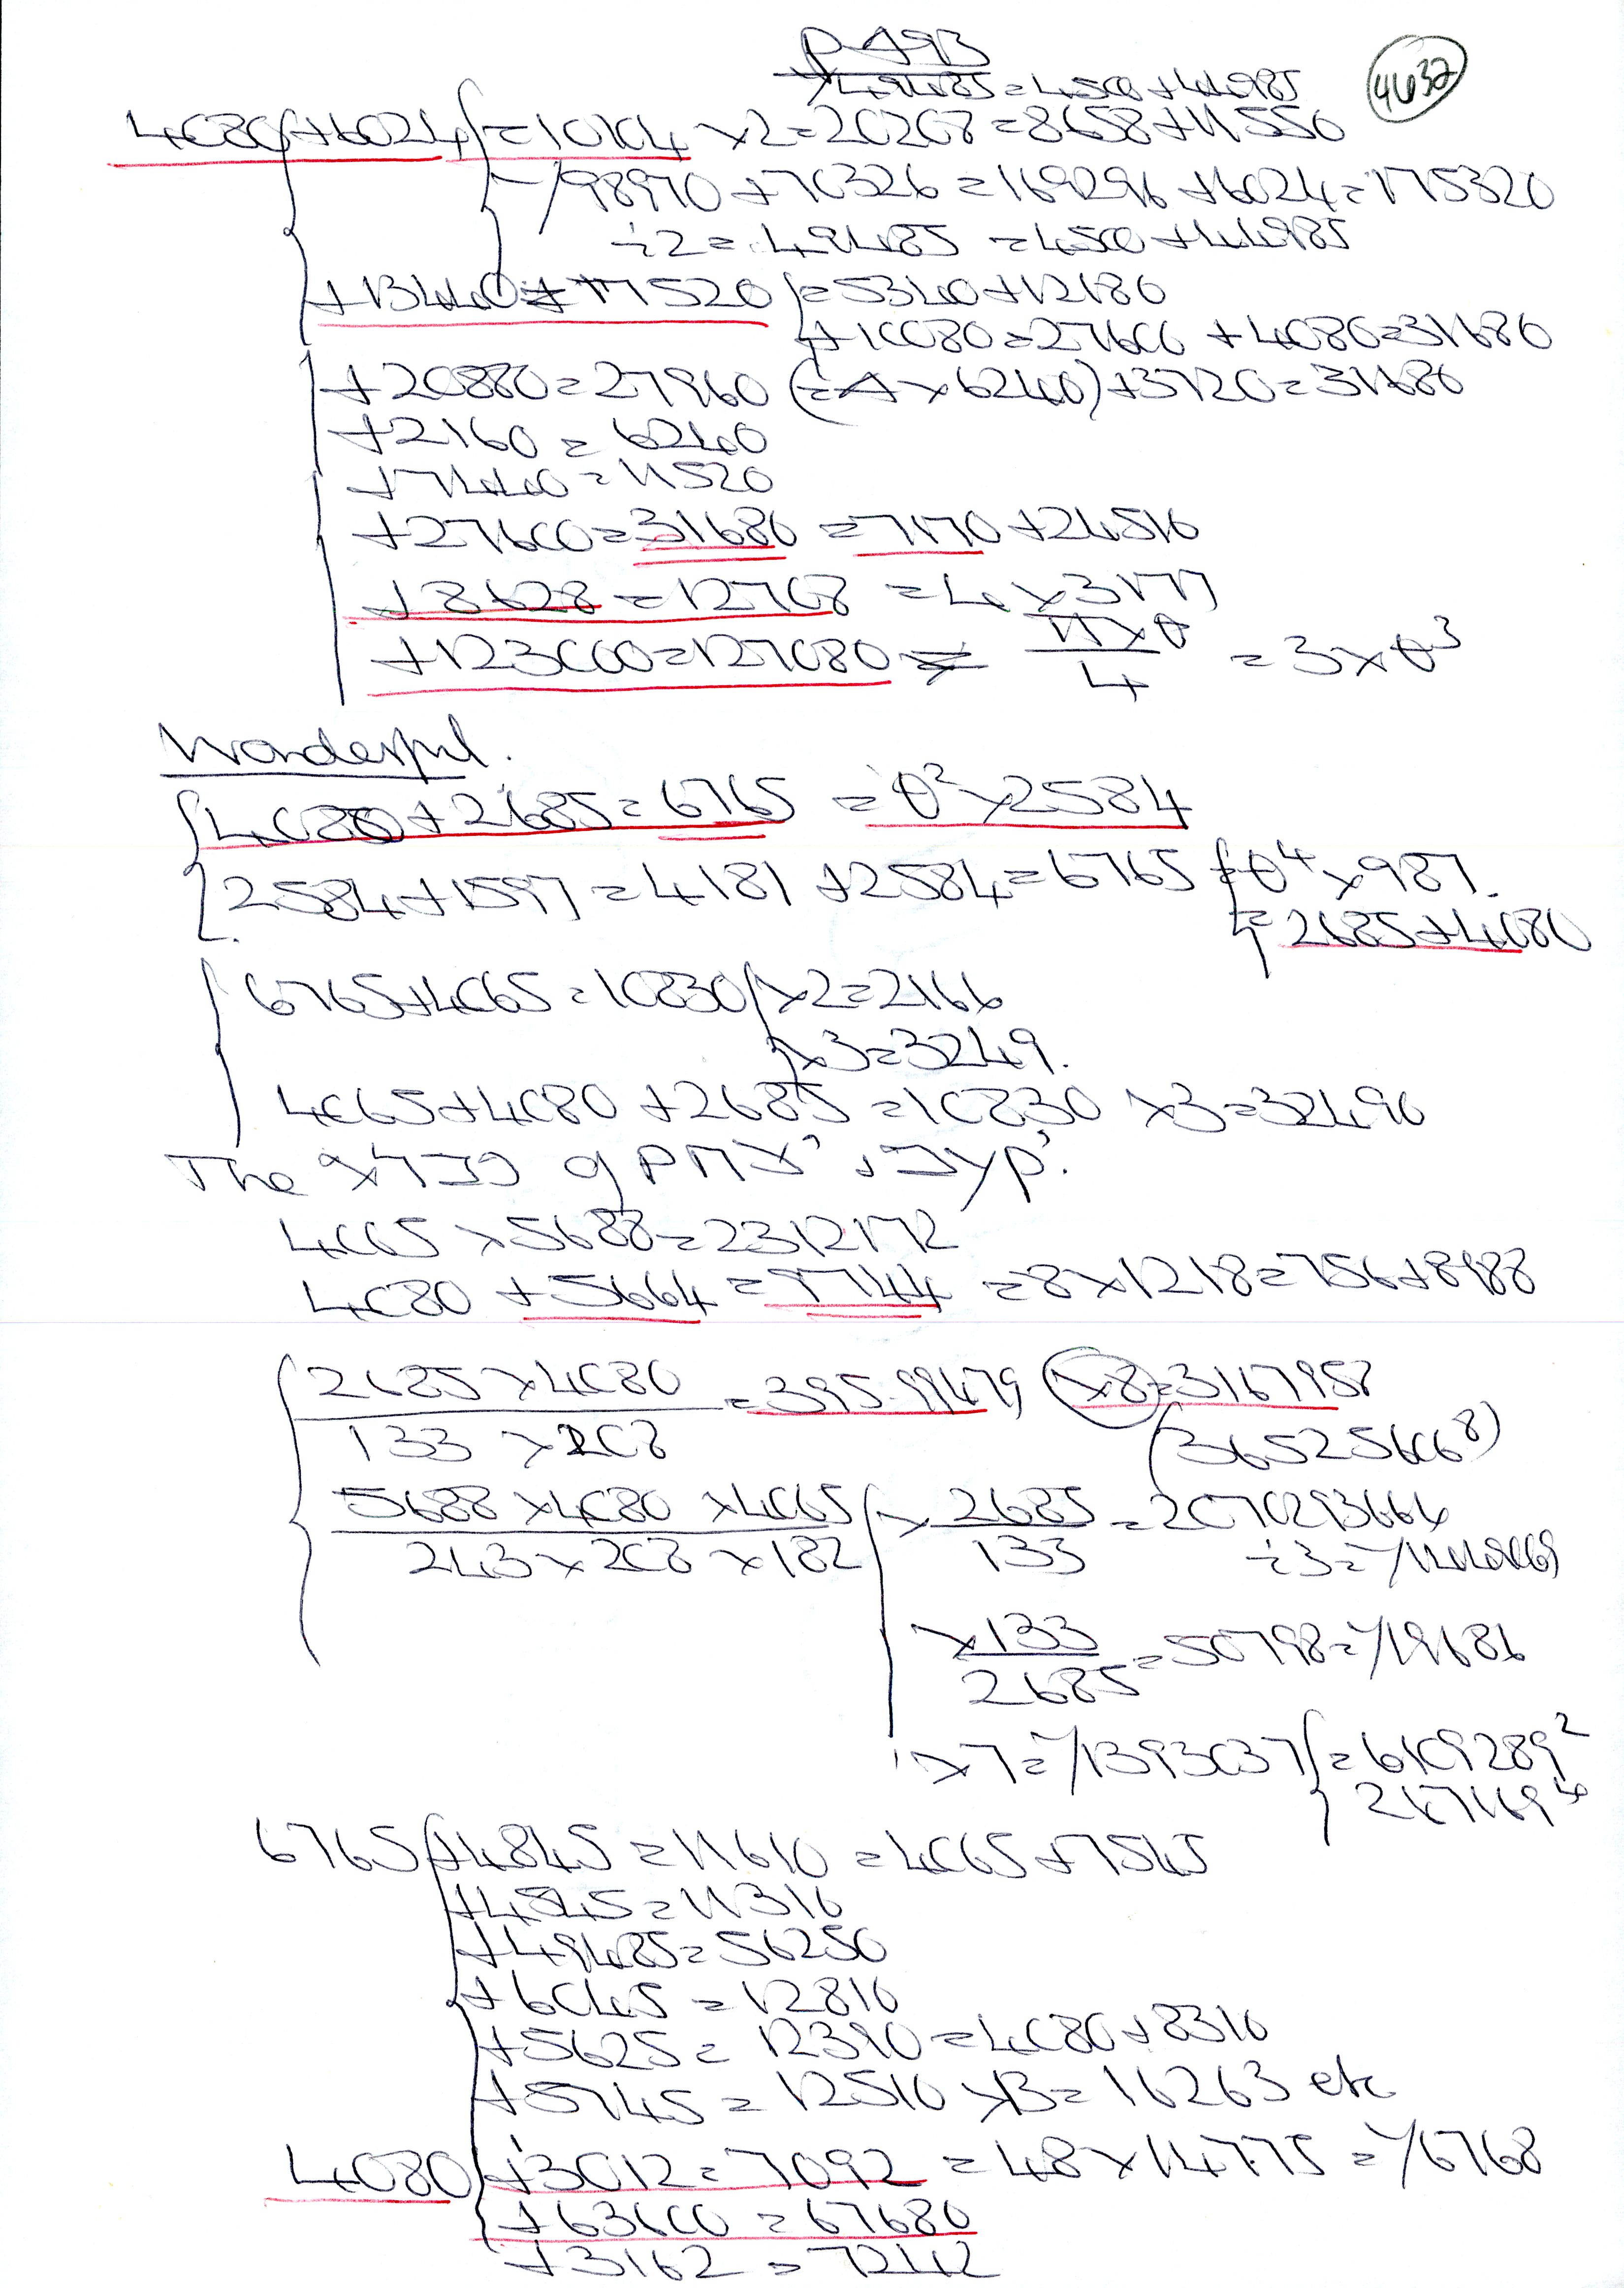 P A93
4632
Y49485=4500+44985
4080+6024=10104 x2=20208=8658+11550
-/98970+70326=169296+6024=175320
÷2=49485=4500+44985
+13440=17520=5340+12180
+10080=27600+4080=31680
+20880=27960 (=4x6240)+3720=31680
+2160=6240
+7440=11520
+27600=31680=7170+24510
+8628=12708=4x3177
+123000=127080= πxθ/4 =3xθ³
Wonderful.
4080+2685=6765=θ²x2584
2584+1597=4181+2584=6765=θ⁴x987.
=2685+4080
6765+4065=10830 x2=2166
x3=3249.
4065+4080+2685=10830 x3=32490
4065x5688=2312172
4080+5664=9744=8x1218=756+8988
2685x4080 / 133x208 =395.99479 x8=3167958
(36525606⁸)
5688x4080x4065 / 243x208x182
x 2685/133 =2070293664
x 133/2685 =50798=Y19686
x7=Y1393037=6109289²
247169⁴
6765+4845=11610=4065+7545
+4545=11310
+49485=56250
+6045=12810
+5625=12390=4080+8310
+5745=12510 x13=16263 etc
4080+3012=7092=48x14775=Y6768
+63600=67680
+3162=7242